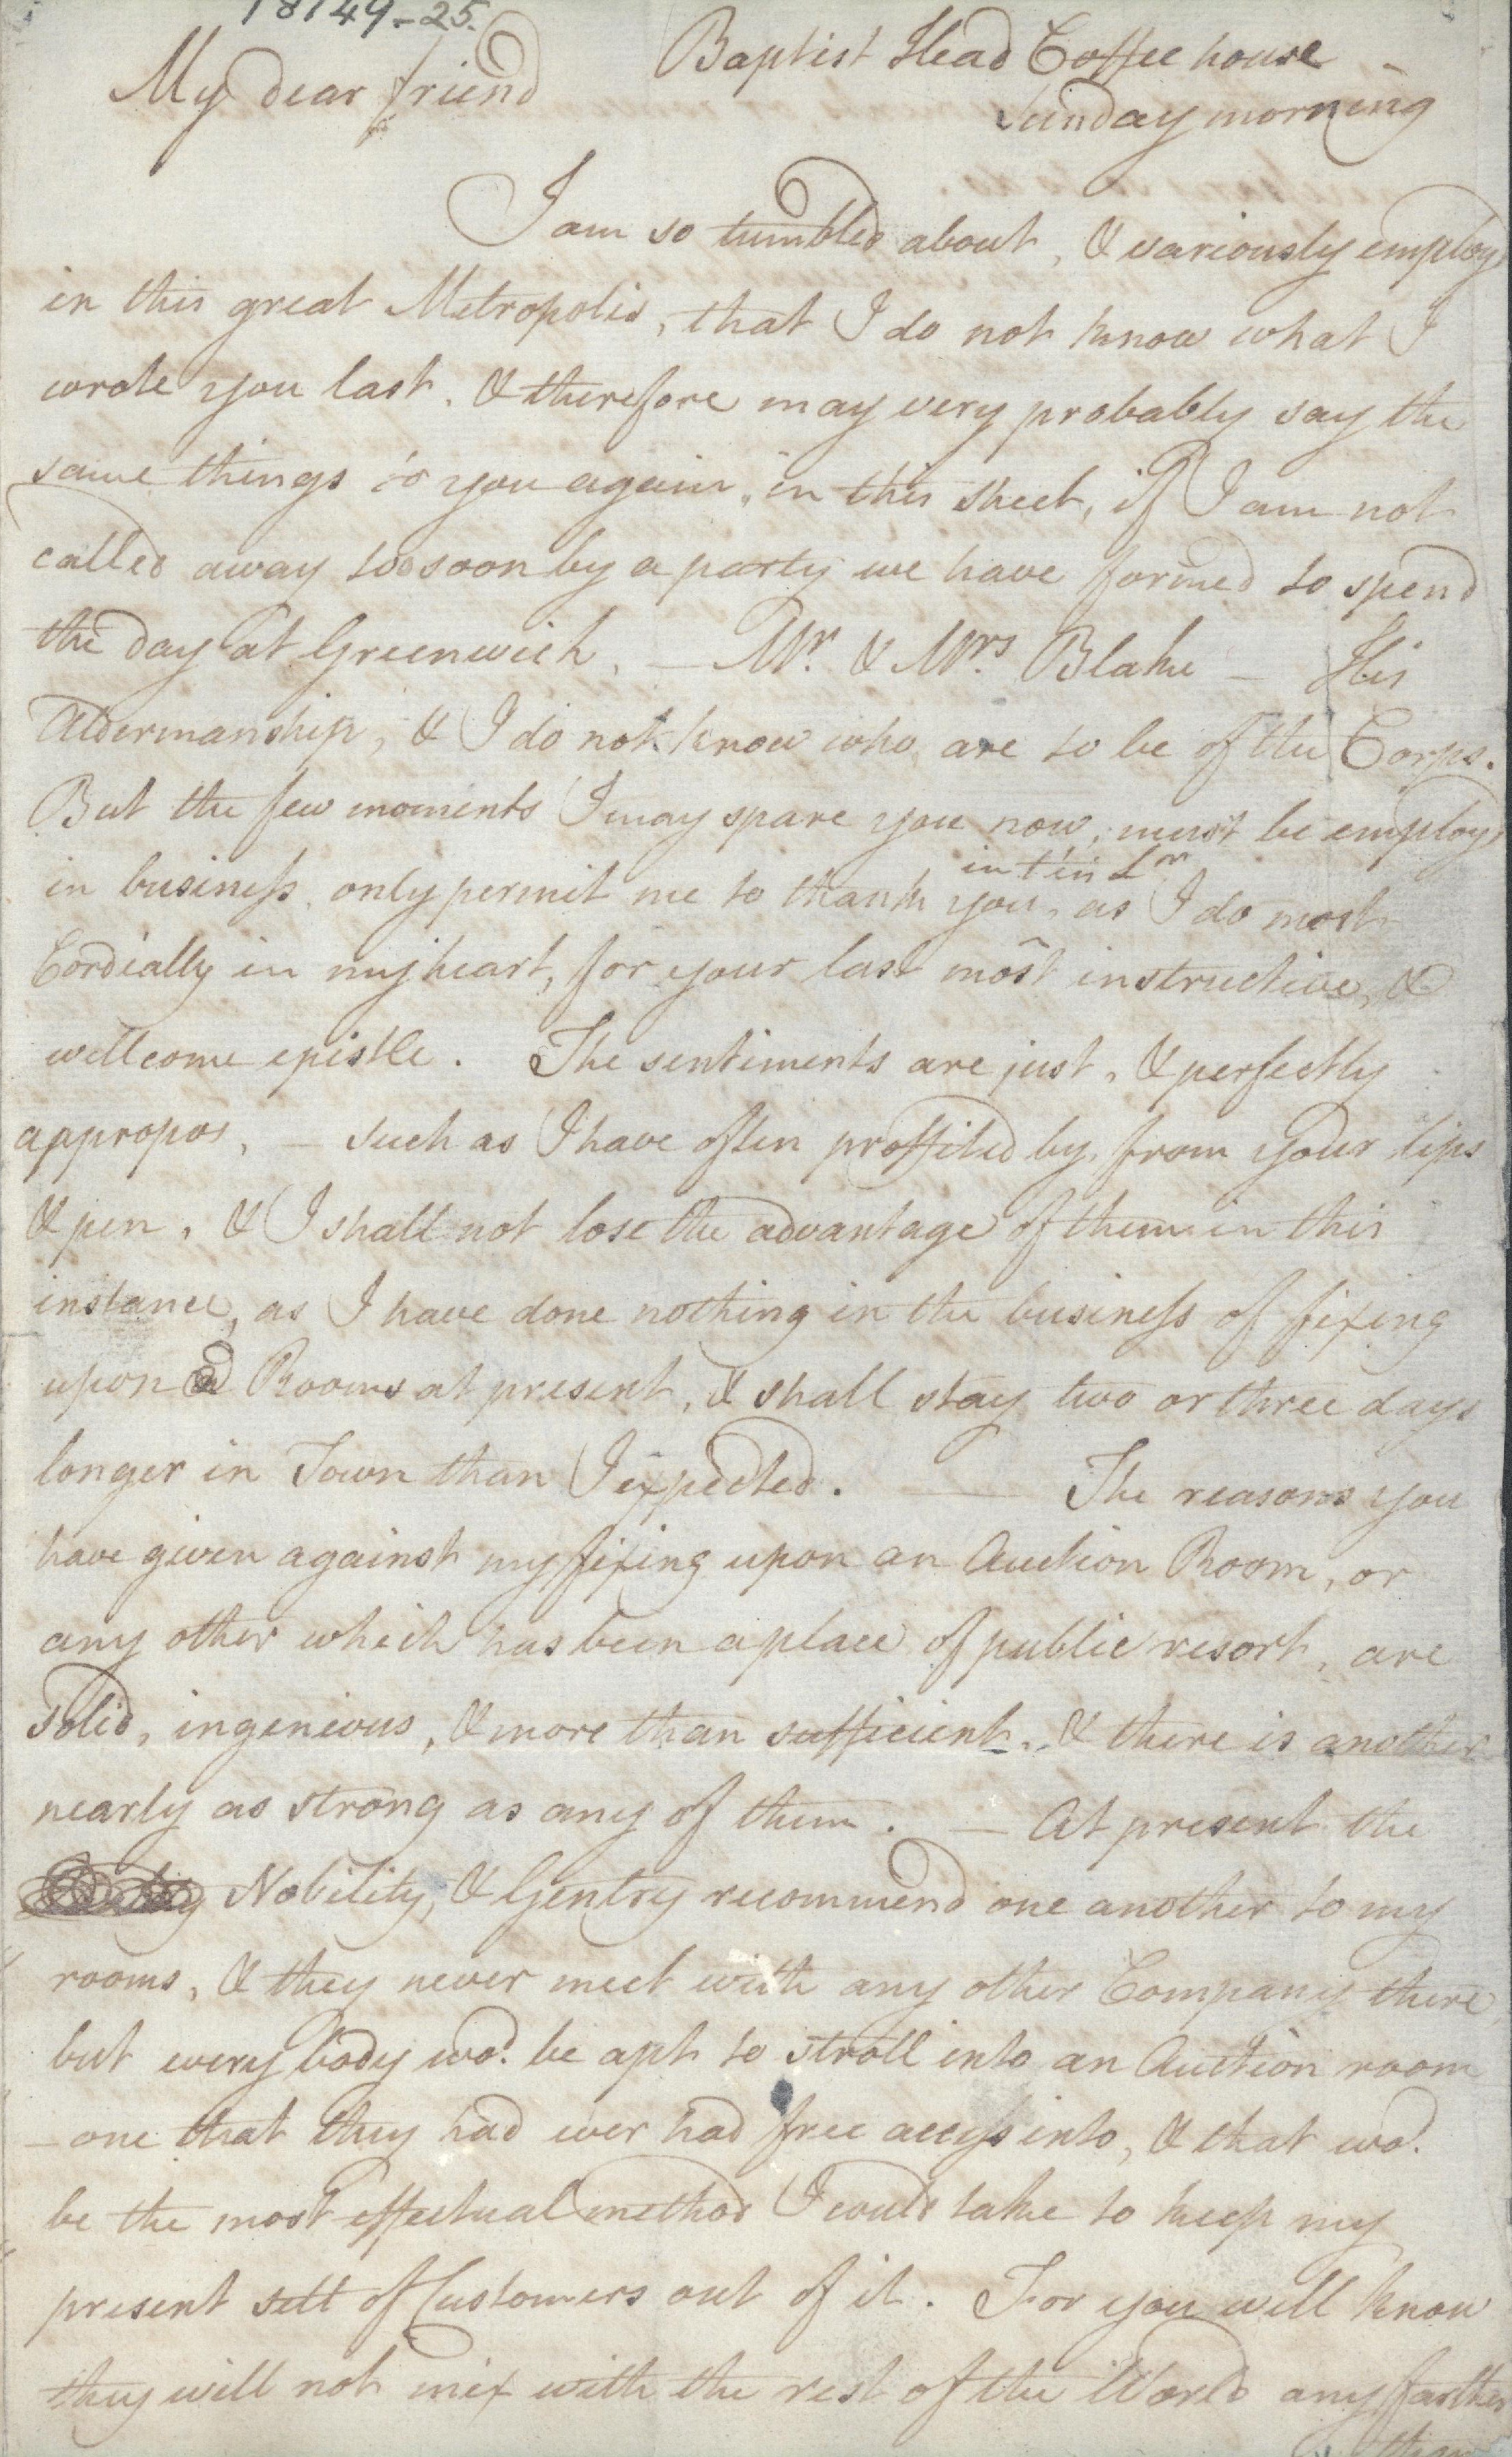 18149-25.
My dear friend
Baptist Head Coffee house
Sunday morning
I am so tumbled about, & variously employ
in this great Metropolis, that I do not know what I
wrote you last, & therefore may very probably say the
same things to you again, in this sheet, if I am not
called away too soon by a party we have formed to spend
the day at Greenwich, — Mr. & Mrs. Blake — His
Aldermanship, & I do not know who are to be of the Corps.
But the few moments I may spare you now, must be employ
in this Lr.
in business, only permit me to thank you, as I do most
Cordially in my heart, for your last most instructive, &
wellcome epistle. The sentiments are just, & perfectly
appropos, — such as I have often proffited by, from your lips
& pen, & I shall not lose the advantage of them in this
instance, as I have done nothing in the business of fixing
upon Rooms at present, & shall stay two or three days
longer in Town than I expected. — The reasons you
have given against my fixing upon an Auction Room, or
any other which has been a place of public resort, are
solid, ingenious, & more than sufficient, & there is another
nearly as strong as any of them. — At present the
Nobility, & Gentry recommend one another to my
rooms, & they never meet with any other Company there,
but every body wod. be apt to stroll into an Auction room
— one that they had ever had free access into, & that wod.
be the most effectual method I could take to keep my
present sett of Customers out of it. For you will know
they will not mix with the rest of the World any farther
than